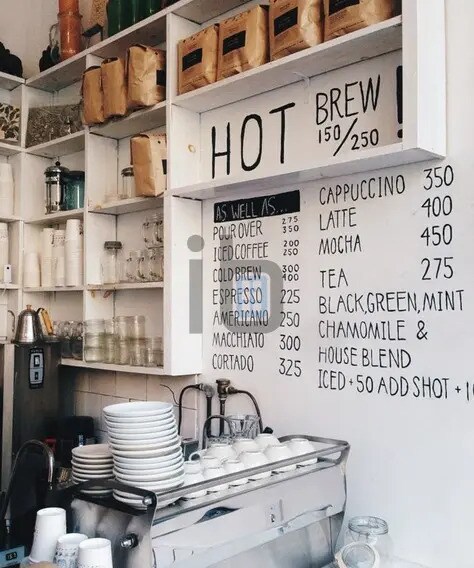 HOT BREW !
150/250
AS WELL AS...
POUR OVER 275 350
ICED COFFEE 200 250
COLD BREW 300
ESPRESSO 225
AMERICANO 250
MACCHIATO 300
CORTADO 325
CAPPUCCINO 350
LATTE 400
MOCHA 450
TEA 275
BLACK, GREEN, MINT
CHAMOMILE &
HOUSE BLEND
ICED +50 ADD SHOT +
ib